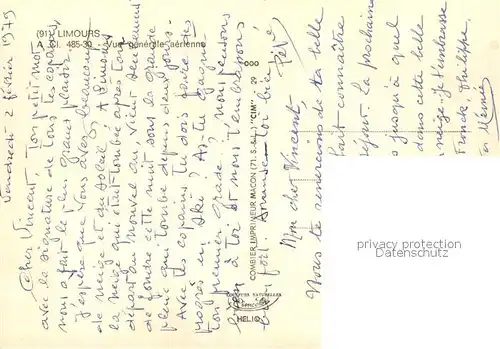 (91) LIMOURS
A. Gl. 485-30 - Vue générale aérienne
Vendredi 2 Février 1979
Cher Vincent, ton petit mot
avec la signature de tous les copains,
nous a fait le plus grand plaisir
J'espère que vous avez beaucoup
de neige et du soleil. A Limours
la neige qui était tombée après ton
départ au nouvel an, vient seulement
de fondre cette nuit sous la grande
pluie qui tombe depuis deux jours.
Avec tes copains tu dois faire des
progrès en ski? As-tu gagné
ton premier grade? nous pensons
bien à toi et nous t'embrassons
bien fort. Amuse-toi bien
COMBIER IMPRIMEUR MACON (71. S.-&-L.) "CIM"
29
HELIO
Mon cher Vincent,
Nous te remercions de ta belle
faut connaître
séjour. La prochaine
jusqu'à quel
dans cette belle
neige. Je t'embrasse
Franck Philippe
Mémée
privacy protection
Datenschutz